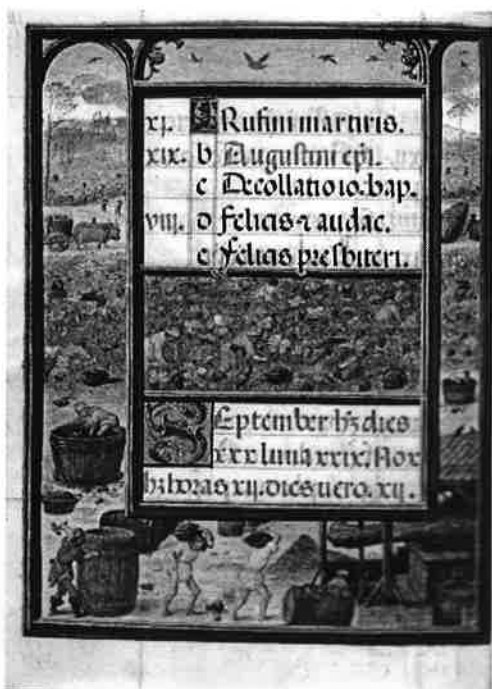 xj. A Rufini martiris.
xix. b Augustini epi.
c Decollatio io. bap.
viij. d Felicis ⁊ audac.
e Felicis presbiteri.
September hꝫ dies
xxx luna xxix. Nox
hꝫ horas xij. dies uero. xij.